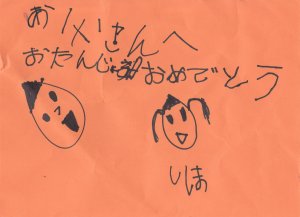 お父さんへ
おたんじょ おめでとう
りほ